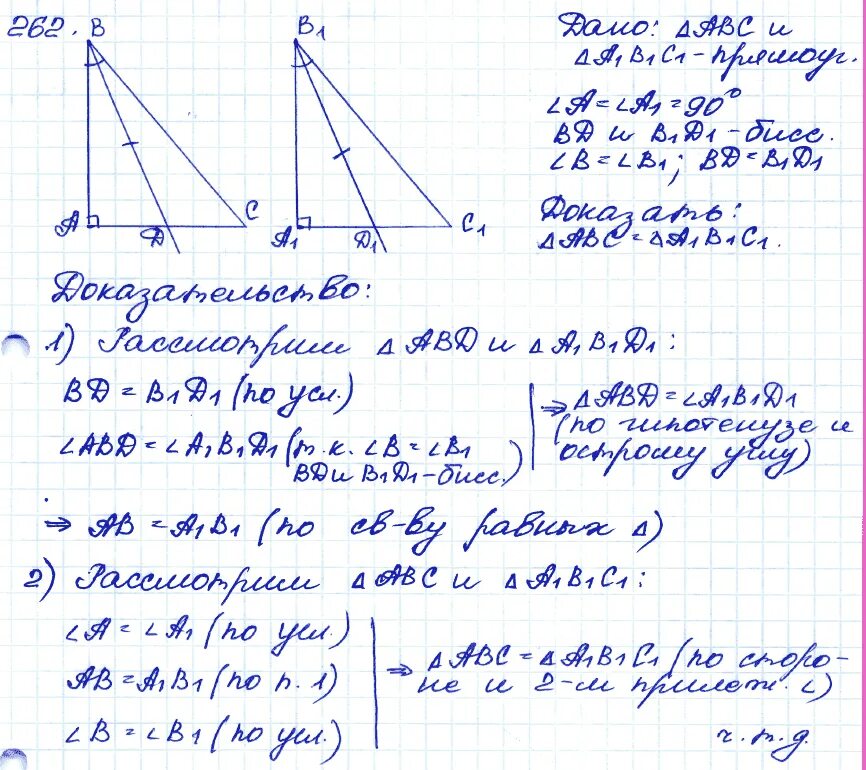 262.
B
B₁
A
D
C
A₁
D₁
C₁
Дано: △ABC и
△A₁B₁C₁ - прямоуг.
∠A = ∠A₁ = 90°
BD и B₁D₁ - бисс.
∠B = ∠B₁; BD = B₁D₁
Доказать:
△ABC = △A₁B₁C₁.
Доказательство:
1) Рассмотрим △ABD и △A₁B₁D₁:
BD = B₁D₁ (по усл.)
∠ABD = ∠A₁B₁D₁ (т.к. ∠B = ∠B₁
BD и B₁D₁ - бисс.)
⇒ △ABD = ∠A₁B₁D₁
(по гипотенузе и
острому углу)
⇒ AB = A₁B₁ (по св-ву равных △)
2) Рассмотрим △ABC и △A₁B₁C₁:
∠A = ∠A₁ (по усл.)
AB = A₁B₁ (по п. 1)
∠B = ∠B₁ (по усл.)
⇒ △ABC = △A₁B₁C₁ (по сторо-
не и 2-м прилож. ∠)
ч.т.д.